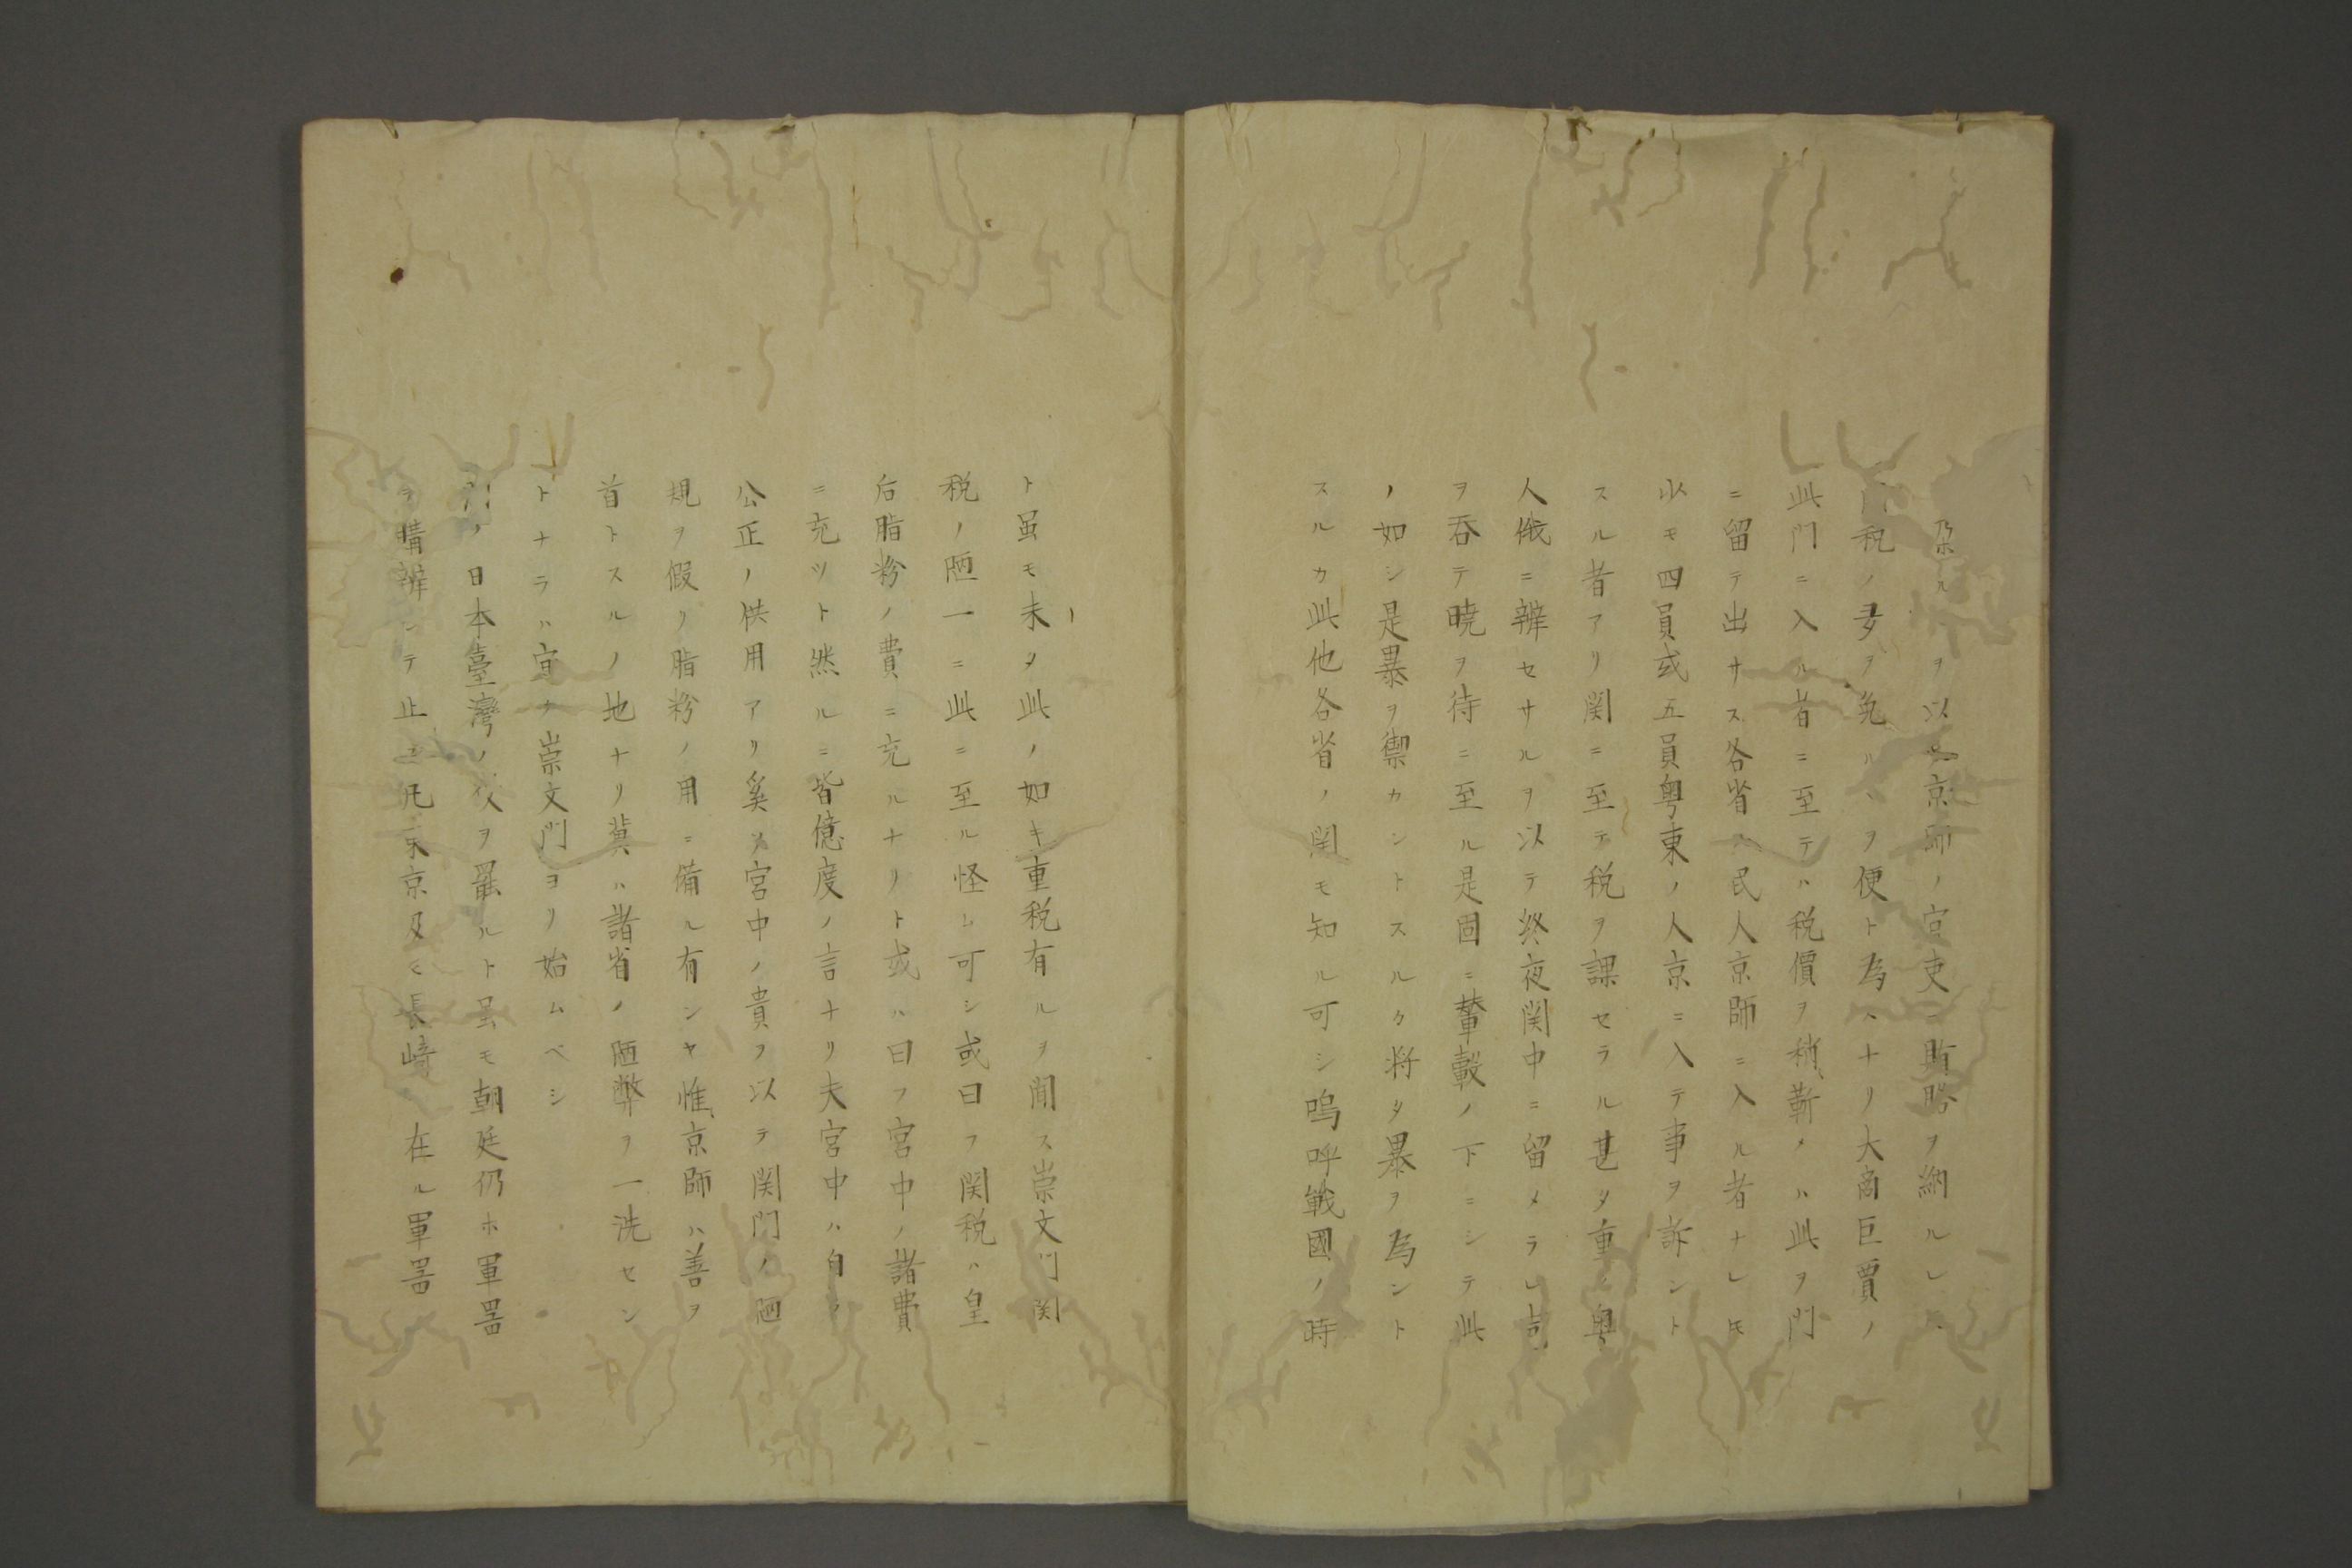 ルヲ以也京師ノ官吏ニ賄賂ヲ納ルレハ
税ノ多ヲ免ルヽヲ便ト為ヽナリ大商巨賈ノ
此門ニ入ル者ニ至テハ税價ヲ稍靳メハ此ヲ門
ニ留テ出サス各省ハ民人京師ニ入ル者ナレ𪜈
少モ四員或五員粤東ノ人京ニ入テ事ヲ訴ント
スル者アリ関ニ至テ税ヲ課セラル甚タ重ノ粤
人俄ニ辨セサルヲ以テ終夜関中ニ留メラレ
ヲ呑テ暁ヲ待ニ至ル是固ニ輦轂ノ下ニシテ此
ノ如シ是暴ヲ禦カントスルカ将タ暴ヲ為ント
スルカ此他各省ノ関モ知ル可シ嗚呼戦國ノ時
ト虽モ未タ此ノ如キ重税有ルヲ聞ス崇文門関
税ノ陋一ニ此ニ至ル怪ム可シ或曰フ関税ハ皇
后脂粉ノ費ニ充ルナリト或ハ曰フ宮中ノ諸費
ニ充ツト然ルニ皆億度ノ言ナリ夫宮中ハ自ラ
公正ノ供用アリ奚ソ宮中ノ貴ヲ以テ関門ノ陋
規ヲ假リ脂粉ノ用ニ備ル有ンヤ惟京師ハ善ヲ
首トスルノ地ナリ冀ハ諸省ノ陋弊ヲ一洗セン
トナラハ宜ク崇文門ヨリ始ムベシ
ノ日本臺灣ノ役ヲ罷ルト虽モ朝廷仍ホ軍器
ヲ購辨シテ止ス凡東京及ヒ長﨑ニ在ル軍器